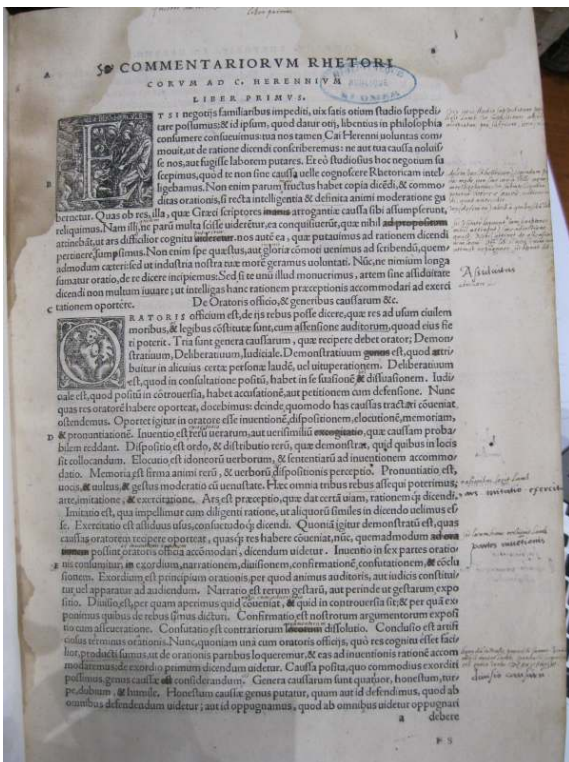 COMMENTARIORVM RHETORI
CORVM AD C. HERENNIVM
LIBER PRIMVS.
A
ETSI negotijs familiaribus impediti, uix satis otium studio suppedi/
tare possumus: & id ipsum, quod datur otij, libentius in philosophia
consumere consueuimus: tua nos tamen Cai Herenni uoluntas com/
mouit, ut de ratione dicendi conscriberemus: ne aut tua caussa noluis/
se nos, aut fugisse laborem putares. Et eò studiosius hoc negotium su
B scepimus, quòd te non sine caussa uelle cognoscere Rhetoricam intel/
ligebamus. Non enim parum fructus habet copia dicẽdi, & commo/
ditas orationis, si recta intelligentia & definita animi moderatione gu
bernetur. Quas ob res, illa, quæ Græci scriptores inanis arrogantiæ caussa sibi assumpserunt,
reliquimus. Nam illi, ne parũ multa scisse uiderẽtur, ea conquisiuerũt, quæ nihil ad propositum
attinebãt, ut ars difficilior cognitu uideretur. nos autẽ ea, quæ putauimus ad rationem dicendi
pertinere, sumpsimus. Non enim spe quæstus, aut gloria cõmoti uenimus ad scribendũ, quem/
admodum cæteri: sed ut industria nostra tuæ morẽ geramus uoluntati. Nũc, ne nimium longa
sumatur oratio, de re dicere incipiemus: Sed si te unũ illud monuerimus, artem sine assiduitate
dicendi non multum iuuare; ut intelligas hanc rationem præceptionis accommodari ad exerci
C tationem oportere. De Oratoris officio, & generibus caussarum &c.
ORATORIS officium est, de ijs rebus posse dicere, quæ res ad usum ciuilem
moribus, & legibus cõstitutæ sunt, cum assensione auditorum, quoad eius fie
ri poterit. Tria sunt genera caussarum, quæ recipere debet orator; Demon/
stratiuum, Deliberatiuum, Iudiciale. Demonstratiuum genus est, quod attri/
buitur in alicuius certæ personæ laudẽ, uel uituperationem. Deliberatiuum
est, quod in consultatione positũ, habet in se suasionẽ & dissuasionem. Iudi/
ciale est, quod positũ in cõtrouersia, habet accusationẽ, aut petitionem cum defensione. Nunc
quas res oratorẽ habere oporteat, docebimus: deinde quomodo has caussas tractari cõueniat,
ostendemus. Oportet igitur in oratore esse inuentionẽ, dispositionem, elocutionẽ, memoriam,
D & pronuntiationẽ. Inuentio est rerũ uerarum, aut uerisimiliũ excogitatio, quæ caussam proba/
bilem reddant. Dispositio est ordo, & distributio rerũ, quæ demonstrat, quid quibus in locis
sit collocandum. Elocutio est idoneorũ uerborum, & sententiarũ ad inuentionem accommo/
datio. Memoria est firma animi rerũ, & uerborũ dispositionis perceptio. Pronuntiatio est,
uocis, & uultus, & gestus moderatio cũ uenustate. Hæc omnia tribus rebus assequi poterimus,
arte, imitatione, & exercitatione. Ars est præceptio, quæ dat certã uiam, rationemq́; dicendi.
Imitatio est, qua impellimur cum diligenti ratione, ut aliquorũ similes in dicendo uelimus es/
se. Exercitatio est assiduus usus, consuetudoq́; dicendi. Quoniã igitur demonstratũ est, quas
caussas oratorem recipere oporteat, quasq́; res habere cõueniat, nũc, quemadmodum ad ora
tionem possint oratoris officia accõmodari, dicendum uidetur. Inuentio in sex partes oratio/
E nis consumitur, in exordium, narrationem, diuisionem, confirmationẽ, confutationem, & cõclu
sionem. Exordium est principium orationis, per quod animus auditoris, aut iudicis constitui/
tur uel apparatur ad audiendum. Narratio est rerum gestarũ, aut perinde ut gestarum expo
sitio. Diuisio est, per quam aperimus quid cõueniat, & quid in controuersia sit; & per quã ex/
ponimus quibus de rebus simus dicturi. Confirmatio est nostrorum argumentorum exposi
tio cum asseueratione. Confutatio est contrariorum locorum dissolutio. Conclusio est artifi
ciosus terminus orationis. Nunc, quoniam unà cum oratoris officijs, quo res cognitu esset faci/
lior, producti sumus, ut de orationis partibus loqueremur, & eas ad inuentionis rationẽ accom
modaremus, de exordio primum dicendum uidetur. Caussa posita, quo commodius exordiri
possimus, genus caussæ est considerandum. Genera caussarum sunt quatuor, honestum, tur/
pe, dubium, & humile. Honestum caussæ genus putatur, quum aut id defendimus, quod ab
omnibus defendendum uidetur; aut id oppugnamus, quod ab omnibus uidetur oppugnari
a debere
Assiduitas
ars imitatio exercit
partes inuentionis